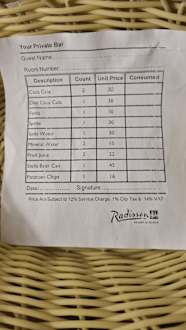 Your Private Bar
Guest Name
Room Number
Description Count Unit Price Consumed
Coca Cola 2 30
Diet Coca Cola 1 30
Fanta 1 30
Sprite 1 30
Soda Water 1 30
Mineral Water 2 15
Fruit Juice 2 32
Stella Beer Can 1 42
Potatoes Chips 1 18
Date: Signature
Price Are Subject to 12% Service Charge, 1% City Tax & 14% VAT
Radisson